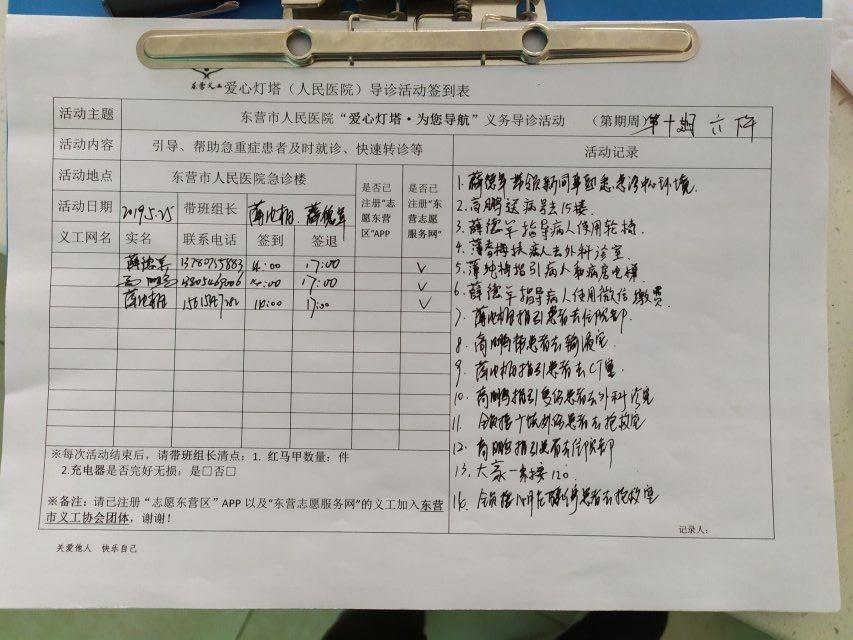 东营义工 爱心灯塔（人民医院）导诊活动签到表
活动主题 东营市人民医院“爱心灯塔·为您导航”义务导诊活动 （第期周） 第十期 六 下午
活动内容 引导、帮助急重症患者及时就诊、快速转诊等 活动记录
活动地点 东营市人民医院急诊楼
是否已注册“志愿东营区”APP
是否已注册“东营志愿服务网”
活动日期 2019.5.25 带班组长 薛德军
义工网名 实名 联系电话 签到 签退
薛德军 13780755883 14:00 17:00 ✓
高鹏 14:00 17:00 ✓
17:00 ✓
1. 薛德军带领新同事熟悉急诊环境.
2. 高鹏送病号去15楼.
3. 薛德军指导病人使用轮椅.
4. 扶病人去外科诊室.
5. 指引病人和病房电梯
6. 薛德军指导病人使用微信缴费
7. 指引患者去住院部
8. 高鹏带患者去输液室.
9. 指引患者去CT室
10. 高鹏指引受伤患者去外科诊室
11. 全员接 患者去抢救室
12. 高鹏指引患者去住院部
13. 大家一来接120.
14. 全员接 患者去抢救室
※每次活动结束后，请带班组长清点：1. 红马甲数量： 件
2.充电器是否完好无损：是□否□
※备注：请已注册“志愿东营区”APP 以及“东营志愿服务网”的义工加入东营
市义工协会团体，谢谢！
记录人：
关爱他人 快乐自己